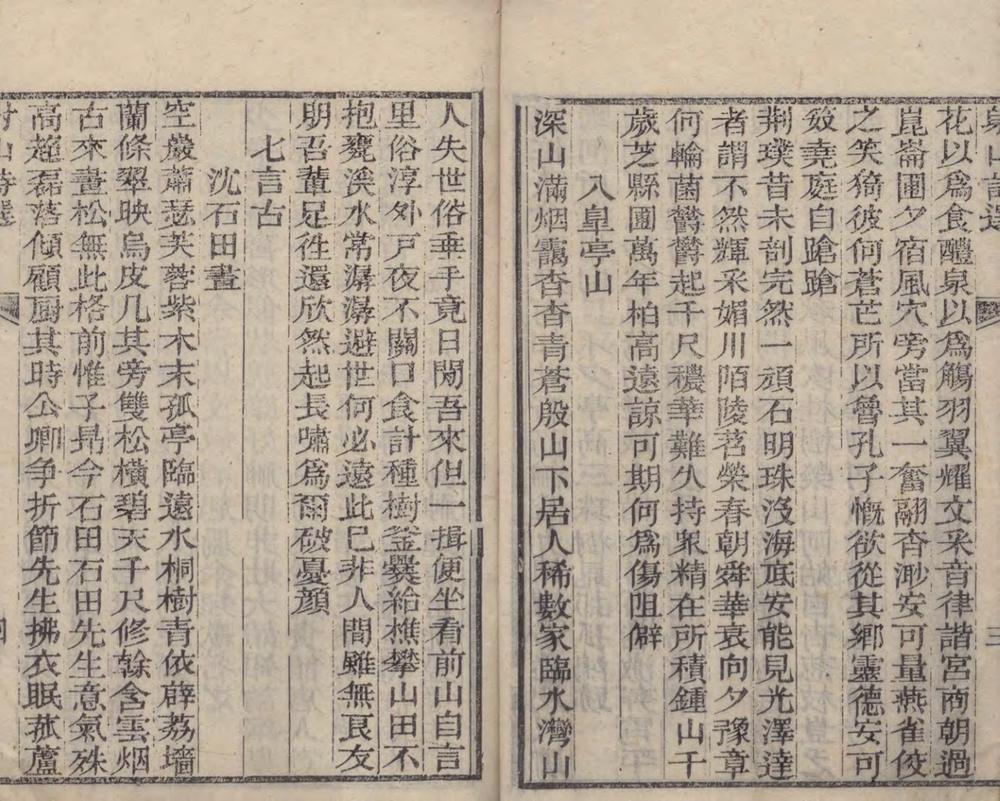 花以爲食醴泉以爲觴羽翼耀文采音律諧宮商朝過
崑崙圃夕宿風穴旁當其一奮翮杳渺安可量燕雀佼
之笑猗彼何蒼茫所以魯孔子慨欲從其鄉靈德安可
敓堯庭自蹌蹌
荆璞昔未剖完然一頑石明珠沒海底安能見光澤達
者謂不然輝采媚川陌陵苕榮春朝舜華衰向夕豫章
何輪菌鬱鬱起千尺穠華難久持衆精在所積鍾山千
歲芝縣圃萬年柏高遠諒可期何爲傷阻僻
入皐亭山
深山滿烟靄杳杳青蒼殷山下居人稀數家臨水灣山
人失世俗垂手竟日閒吾來但一揖便坐看前山自言
里俗淳外戸夜不關口食計種樹釜爨給樵攀山田不
抱甕溪水常潺潺避世何必遠此已非人間雖無良友
朋吾輩足徃還欣然起長嘯爲爾破憂顔
七言古
沈石田畫
空巖蕭瑟芙蓉紫木末孤亭臨遠水桐樹青依薜荔墻
蘭條翠映烏皮几其旁雙松橫碧天千尺修榦含雲烟
古來畫松無此格前惟子昻今石田石田先生意氣殊
高趣磊落傾顧厨其時公卿争折節先生拂衣眠菰蘆